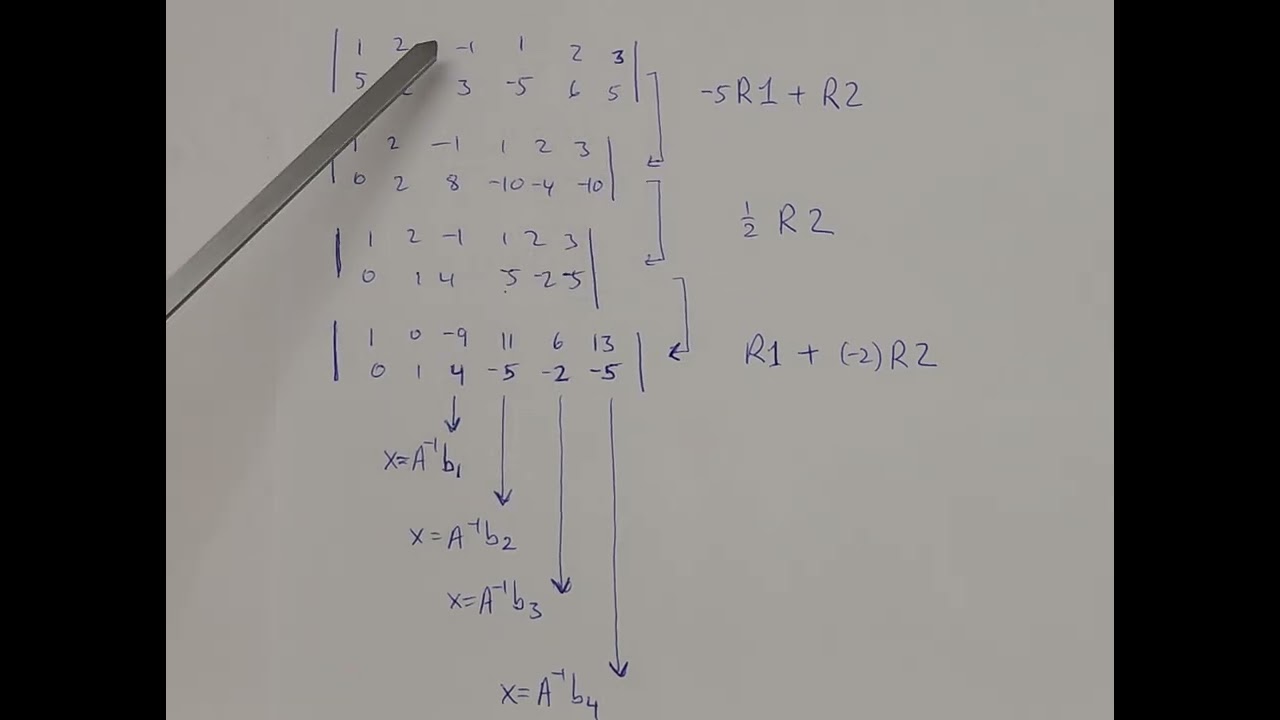 1 2 -1 1 2 3
5 3 -5 6 5
-5R1 + R2
1 2 -1 1 2 3
0 2 8 -10 -4 -10
1/2 R2
1 2 -1 1 2 3
0 1 4 -5 -2 -5
1 0 -9 11 6 13
0 1 4 -5 -2 -5
R1 + (-2)R2
x=A⁻¹b₁
x=A⁻¹b₂
x=A⁻¹b₃
x=A⁻¹b₄